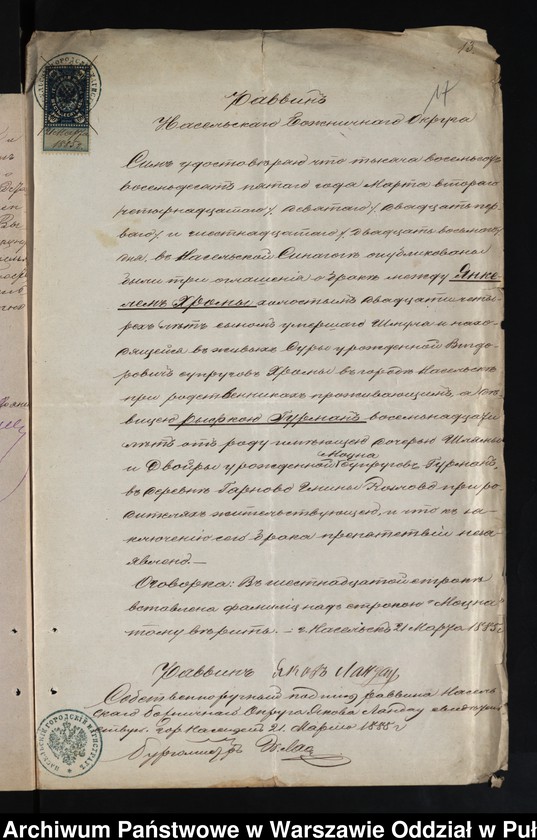 13.
14
Раввинъ
Насельскаго Божничнаго Округа
Симъ удостовѣряю что тысяча восемьсотъ
восемьдесятъ пятаго года Марта втораго
/четырнадцатаго/, девятаго /двадцать пер-
ваго/ и шестнадцатаго /двадцать восьмаго/
дня, въ Насельской Синагогѣ опубликованы
были три оглашенія о бракѣ между Янке-
лемъ Храмы холостымъ двадцати четы-
рехъ лѣтъ сыномъ умершаго и нахо-
дящейся въ живыхъ Суры урожденной
ровичъ супруговъ Храмы въ городѣ Насельскѣ
при родственникахъ проживающимъ, а дѣ-
вицею Рыфкою Гурманъ восемьнадцати
лѣтъ отъ роду имѣющею дочерью
Моцна
и Двойры урожденной супруговъ Гурманъ,
въ деревнѣ Гарново Гмины при ро-
дителяхъ жительствующею, и что къ за-
ключенію сего брака препятствій неза-
явлено. —
Оговорка: Въ шестнадцатой строкѣ
вставлена фамилія надъ строкою "Моцна"
тому вѣрить. — г. Насельскъ 21 Марта 1885 г.
Раввинъ Яковъ Ландау
Собственноручный подпись раввина Насель-
скаго Божничнаго Округа Якова Ландау свидѣтель-
ствую. Гор. Насельскъ 21 Марта 1885 г.
Бургомистръ
НАСЕЛЬСКІЙ ГОРОДСКІЙ МАГИСТРАТЪ
1885 г.
Archiwum Państwowe w Warszawie Oddział w Puł